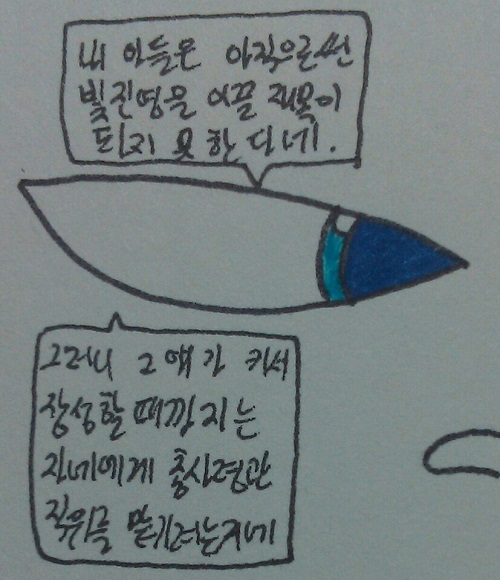 내 아들은 아직으론썬
빛진영을 이끌 재목이
되지 못한다네.
그러니 그 얘가 커서
장성할 때까지는
자네에게 총사령관
직위를 맡기려는거네